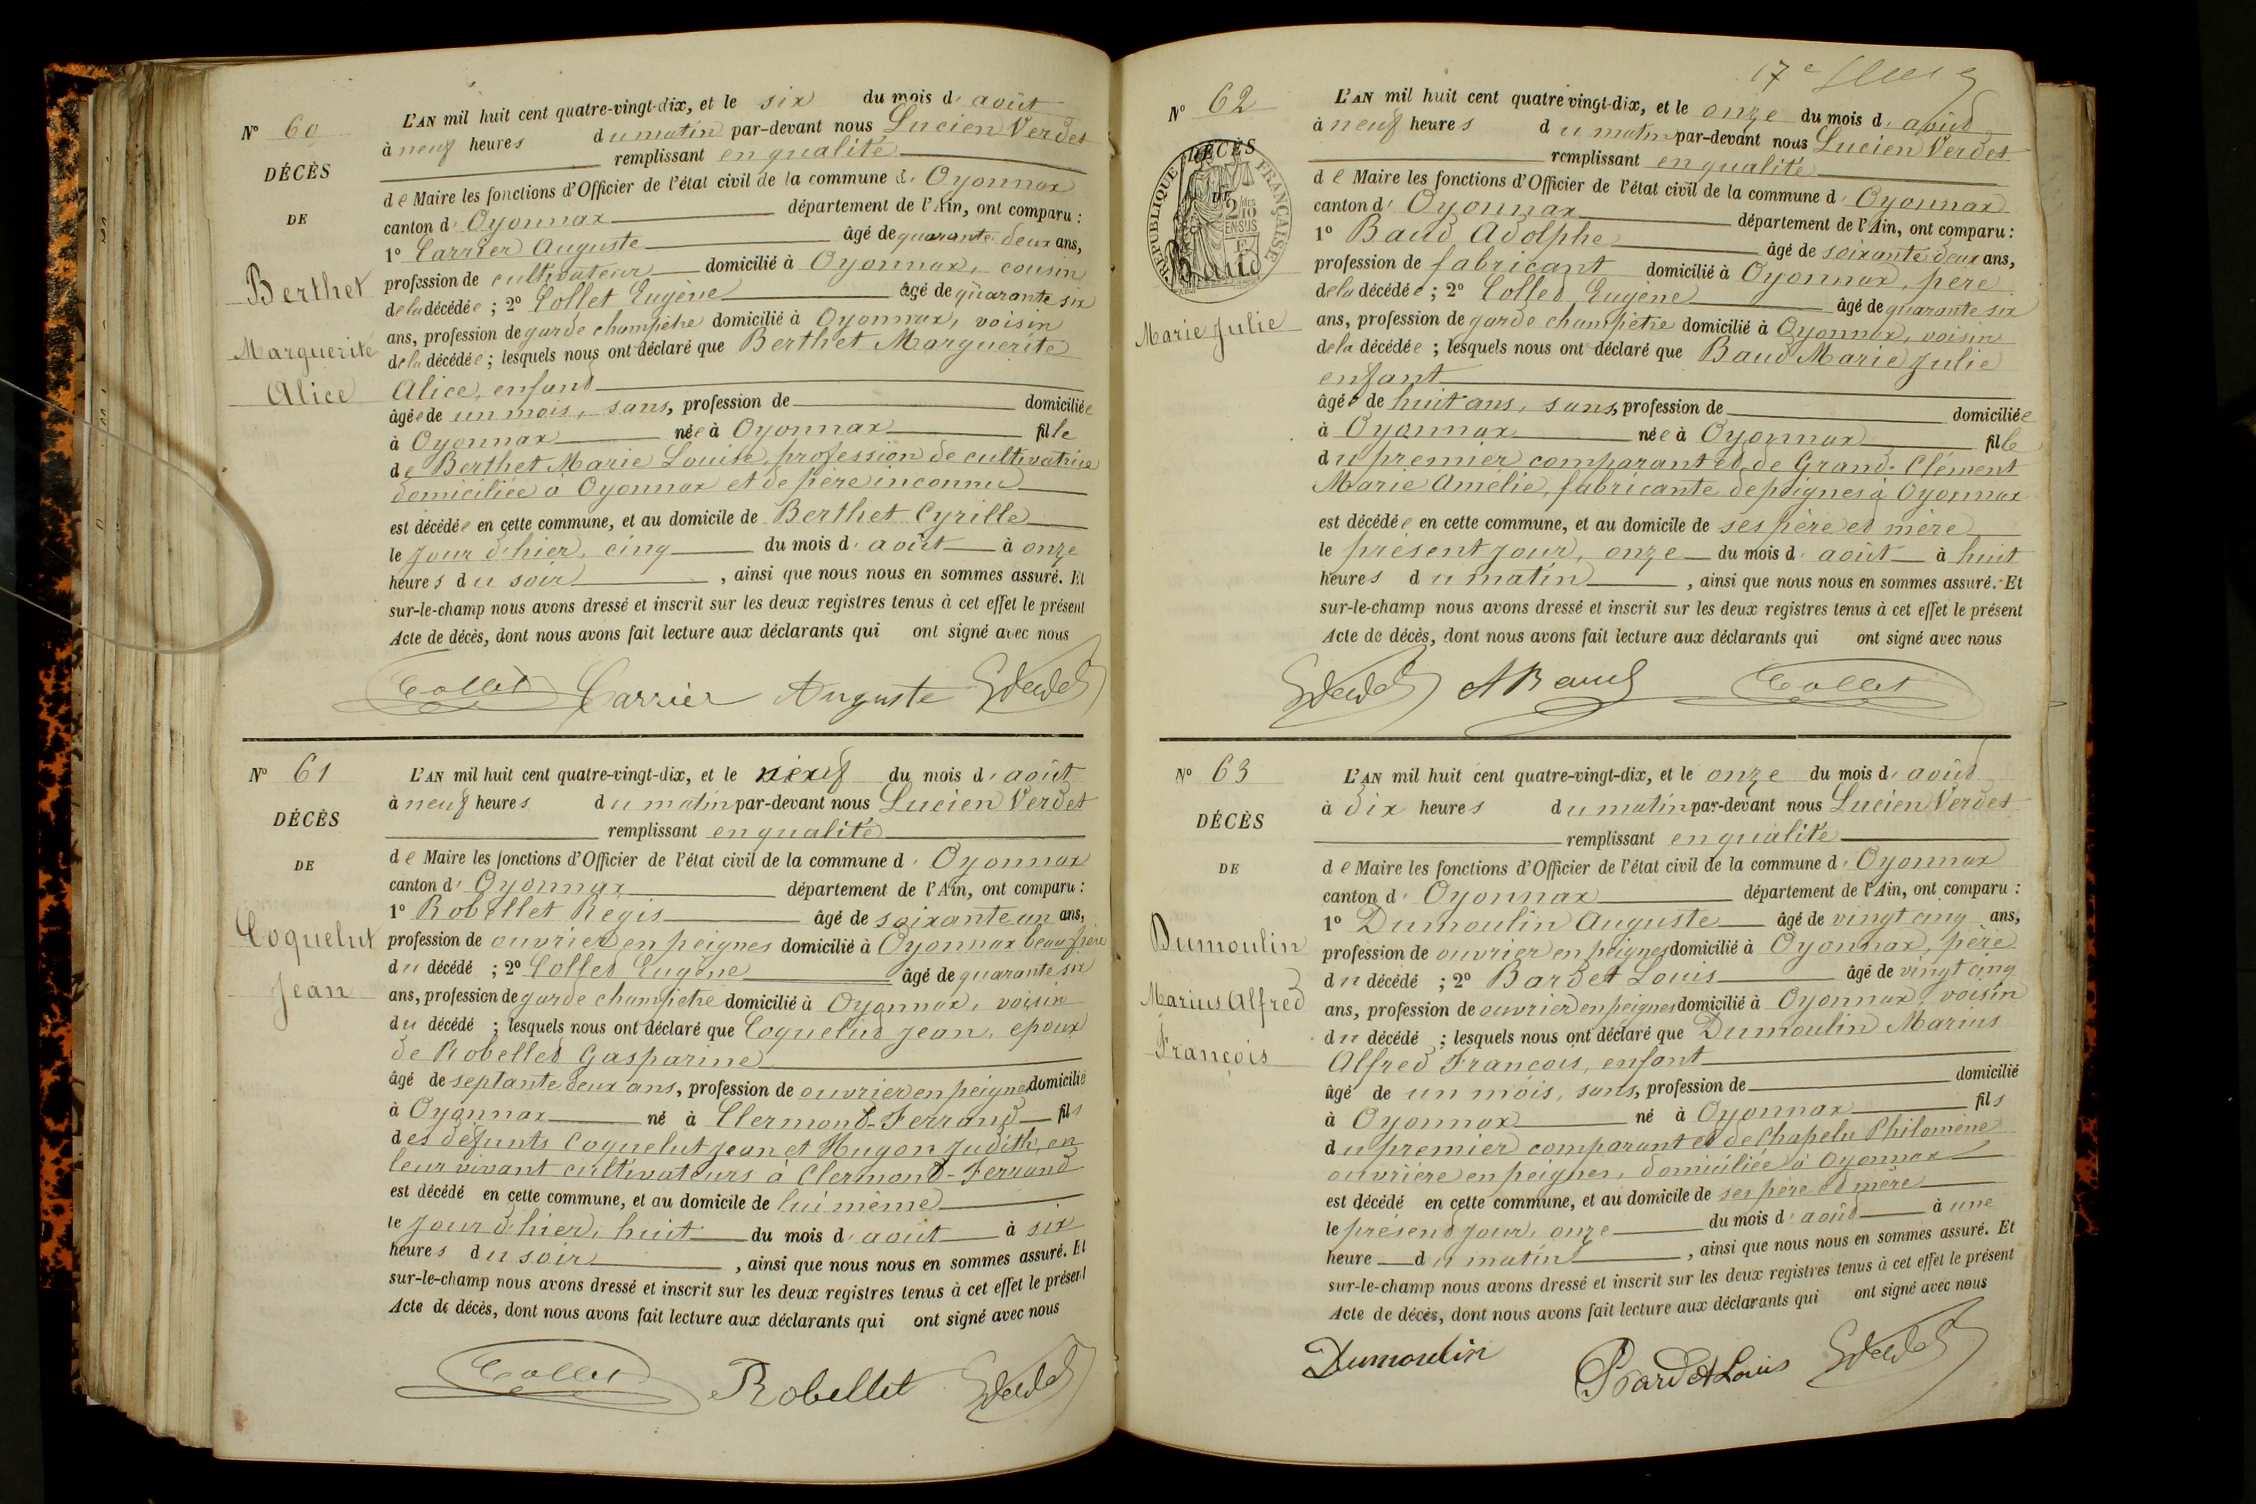 N° 60
DÉCÈS
DE
Berthet
Marguerite
Alice
L'AN mil huit cent quatre-vingt-dix, et le six du mois d'août
à neuf heures du matin par-devant nous Lucien Verdet
remplissant en qualité
de Maire les fonctions d'Officier de l'état civil de la commune d'Oyonnax
canton d'Oyonnax département de l'Ain, ont comparu :
1° Carrier Auguste âgé de quarante deux ans,
profession de cultivateur domicilié à Oyonnax, cousin
de la décédée ; 2° Collet Eugène âgé de quarante six
ans, profession de garde champêtre domicilié à Oyonnax, voisin
de la décédée ; lesquels nous ont déclaré que Berthet Marguerite
Alice, enfant
âgée de un mois, sans, profession de domiciliée
à Oyonnax née à Oyonnax fille
de Berthet Marie Louise, profession de cultivatrice
domiciliée à Oyonnax et de père inconnu
est décédée en cette commune, et au domicile de Berthet Cyrille
le jour d'hier, cinq du mois d'août à onze
heures du soir, ainsi que nous nous en sommes assuré. Et
sur-le-champ nous avons dressé et inscrit sur les deux registres tenus à cet effet le présent
Acte de décès, dont nous avons fait lecture aux déclarants qui ont signé avec nous
Collet Carrier Auguste
N° 61
DÉCÈS
DE
Coquelut
Jean
L'AN mil huit cent quatre-vingt-dix, et le neuf du mois d'août
à neuf heures du matin par-devant nous Lucien Verdet
remplissant en qualité
de Maire les fonctions d'Officier de l'état civil de la commune d'Oyonnax
canton d'Oyonnax département de l'Ain, ont comparu :
1° Robellet Régis âgé de soixante un ans,
profession de ouvrier en peignes domicilié à Oyonnax beau frère
du décédé ; 2° Collet Eugène âgé de quarante six
ans, profession de garde champêtre domicilié à Oyonnax, voisin
du décédé ; lesquels nous ont déclaré que Coquelut Jean, époux
de Robellet Gasparine
âgé de septante deux ans, profession de ouvrier en peignes domicilié
à Oyonnax né à Clermont-Ferrand fils
des défunts Coquelut Jean et Hugon Judith, en
leur vivant cultivateurs à Clermont-Ferrand
est décédé en cette commune, et au domicile de lui même
le jour d'hier, huit du mois d'août à six
heures du soir, ainsi que nous nous en sommes assuré. Et
sur-le-champ nous avons dressé et inscrit sur les deux registres tenus à cet effet le présent
Acte de décès, dont nous avons fait lecture aux déclarants qui ont signé avec nous
Collet Robellet
17e
N° 62
DÉCÈS
RÉPUBLIQUE FRANÇAISE
2/10 EN SUS
Baud
Marie Julie
L'AN mil huit cent quatre vingt-dix, et le onze du mois d'août
à neuf heures du matin par-devant nous Lucien Verdet
remplissant en qualité
de Maire les fonctions d'Officier de l'état civil de la commune d'Oyonnax
canton d'Oyonnax département de l'Ain, ont comparu :
1° Baud Adolphe âgé de soixante deux ans,
profession de fabricant domicilié à Oyonnax, père
de la décédée ; 2° Collet Eugène âgé de quarante six
ans, profession de garde champêtre domicilié à Oyonnax, voisin
de la décédée ; lesquels nous ont déclaré que Baud Marie Julie
enfant
âgée de huit ans, sans, profession de domiciliée
à Oyonnax née à Oyonnax fille
du premier comparant et de Grand-Clément
Marie Amélie, fabricante de peignes à Oyonnax
est décédée en cette commune, et au domicile de ses père et mère
le présent jour, onze du mois d'août à huit
heures du matin, ainsi que nous nous en sommes assuré. Et
sur-le-champ nous avons dressé et inscrit sur les deux registres tenus à cet effet le présent
Acte de décès, dont nous avons fait lecture aux déclarants qui ont signé avec nous
A Baud Collet
N° 63
DÉCÈS
DE
Dumoulin
Marius Alfred
François
L'AN mil huit cent quatre-vingt-dix, et le onze du mois d'août
à dix heures du matin par-devant nous Lucien Verdet
remplissant en qualité
de Maire les fonctions d'Officier de l'état civil de la commune d'Oyonnax
canton d'Oyonnax département de l'Ain, ont comparu :
1° Dumoulin Auguste âgé de vingt cinq ans,
profession de ouvrier en peignes domicilié à Oyonnax, père
du décédé ; 2° Bardet Louis âgé de vingt cinq
ans, profession de ouvrier en peignes domicilié à Oyonnax, voisin
du décédé ; lesquels nous ont déclaré que Dumoulin Marius
Alfred François, enfant
âgé de un mois, sans, profession de domicilié
à Oyonnax né à Oyonnax fils
du premier comparant et de Chapelu Philomène
ouvrière en peignes, domiciliée à Oyonnax
est décédé en cette commune, et au domicile de ses père et mère
le présent jour, onze du mois d'août à une
heure du matin, ainsi que nous nous en sommes assuré. Et
sur-le-champ nous avons dressé et inscrit sur les deux registres tenus à cet effet le présent
Acte de décès, dont nous avons fait lecture aux déclarants qui ont signé avec nous
Dumoulin Bardet Louis